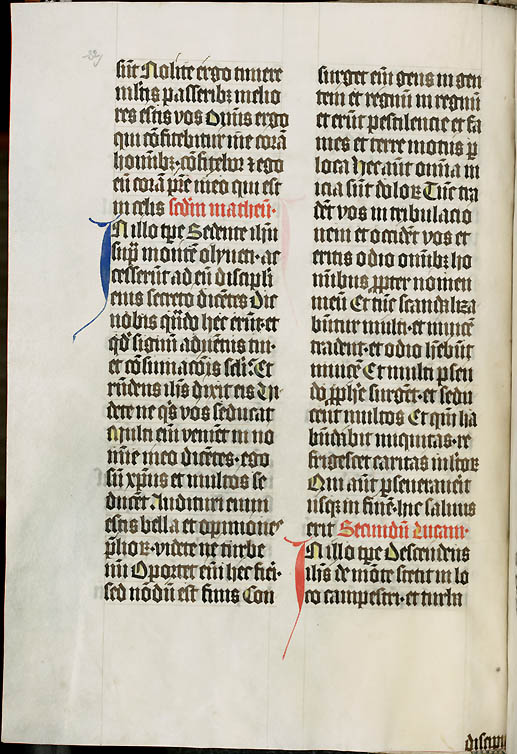 sūt Nolite ergo timere
mltis passeribꝫ melio
res estis vos Om̄is ergo
qui cōfitebitur me corā
homībꝫ · cōfitebor ⁊ ego
eū corā pr̄e meo qui est
in celis scdm matheū ·
In illo tp̄e Sedente ih̄u
sup̄ montē olyueti · ac
cesserūt ad eū discipli
eius secreto dicētes Dic
nobis qn̄do hec erūt · et
qd̄ signū aduentus tui ·
et cōsumacōis sc̄li · Et
rn̄dens ih̄s dixit eis Vi
dete ne q̄s vos seducat
Multi em̄ venient in no
mīe meo dicētes · ego
sū xp̄us et multos se
ducēt Audituri enim
estis bella et opiniones
p̄lioꝝ · videte ne turbe
mī Oportet em̄ hec fieri ·
sed nōdū est finis Con
surget em̄ gens in gen
tem et regnū in regnū
et erūt pestilencie et fa
mes et terre motus ꝑ
loca Hec aūt om̄ia in
icia sūt doloꝝ Tūc tra
dēt vos in tribulacio
nem et occidēt vos et
eritis odio om̄ibꝫ ho
mībus ꝓpter nomen
meū Et tūc scandaliza
būntur multi · et inuicē
tradent · et odio hēbūt
inuicē Et multi pseu
do ꝓph̄e surgēt · et sedu
cent multos Et qm̄ ha
būdabit iniquitas · re
frigescet caritas mltoꝝ
Qui aūt ꝑseuerauerit
usqꝫ in finē · hic saluus
erit Secundū Lucam ·
In illo tp̄e Descendens
ih̄s de mōte stetit in lo
co campestri · et turbā
discipu